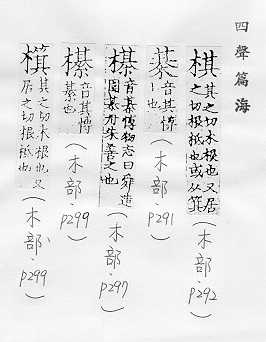 四聲篇海
棋 其之切木根也又居
之切根柢也或从箕
(木部.P292)
音其博
上也
(木部.P291)
棊 音其博物志曰舜造
圍棊丹朱善之也
(木部.P297)
櫀 音其博
棊也
(木部.P299)
其之切木根也又
居之切根柢也
(木部.P299)